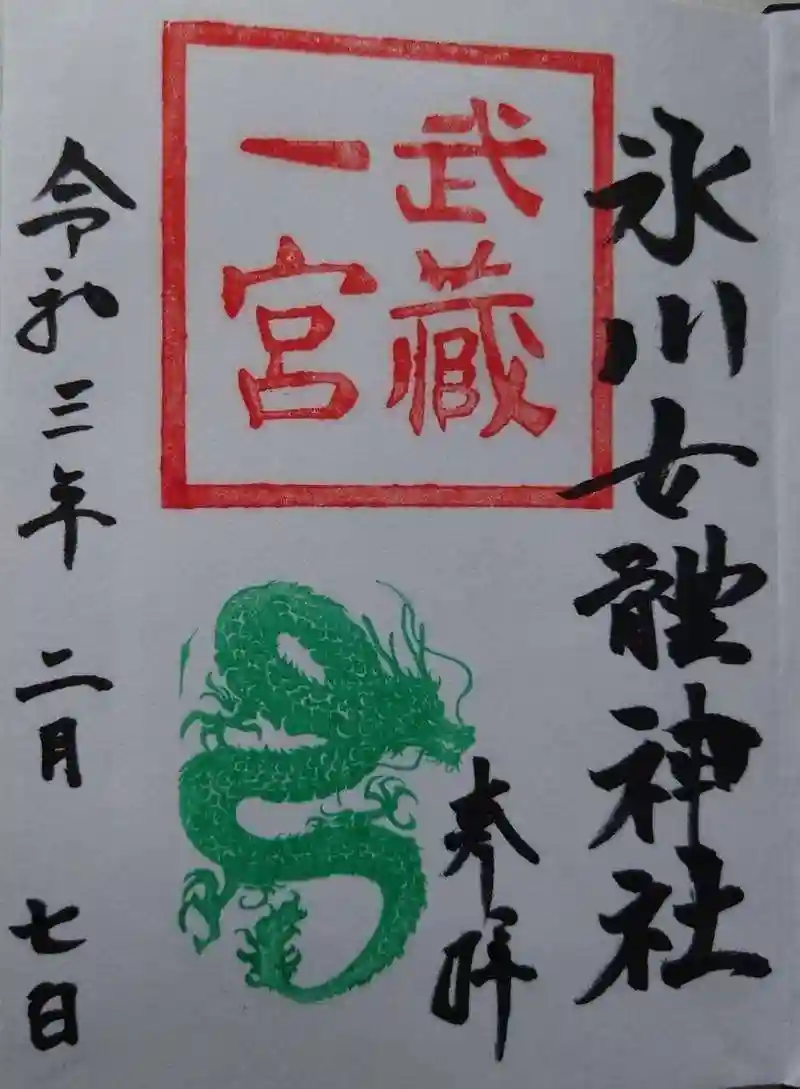 氷川女體神社
奉拝
武蔵
一宮
令和三年 二月 七日